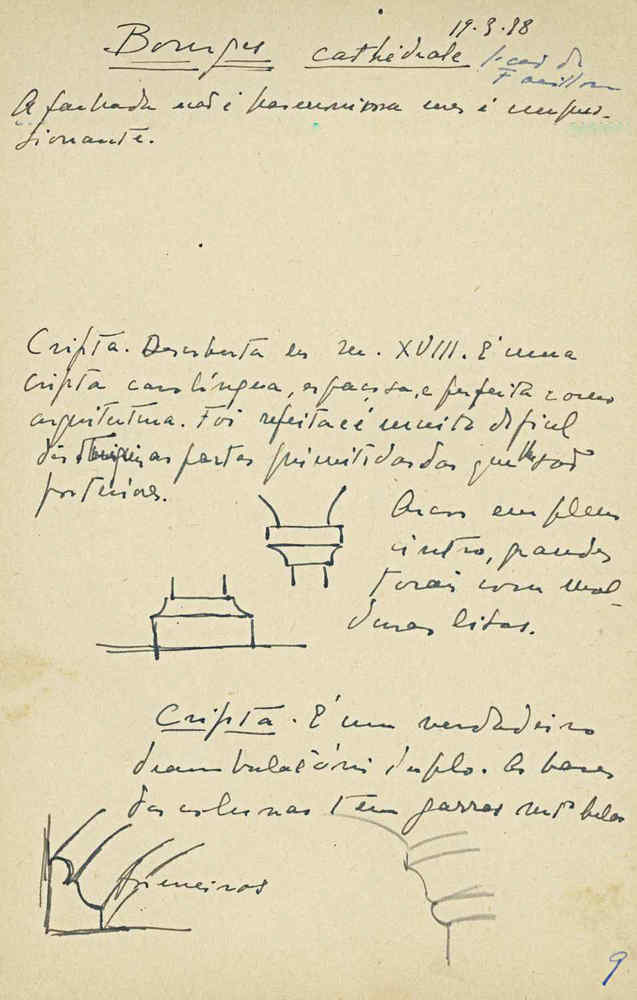 19.3.88
Bourges cathédrale
A fachada não é harmoniosa mas é impres-
sionante.
Cripta. Descoberta no séc. XVIII. É uma
cripta carolíngea, espaçosa, e perfeita como
arquitectura. Foi refeita e é muito dificil
distinguir as partes primitivas das que lhe são
posteriores.
Arcos em pleno
cintro, grandes
torais com mol-
duras lisas.
Cripta. É um verdadeiro
deambulatório duplo. As bases
das colunas têm garras mtº belas
primeiros
9